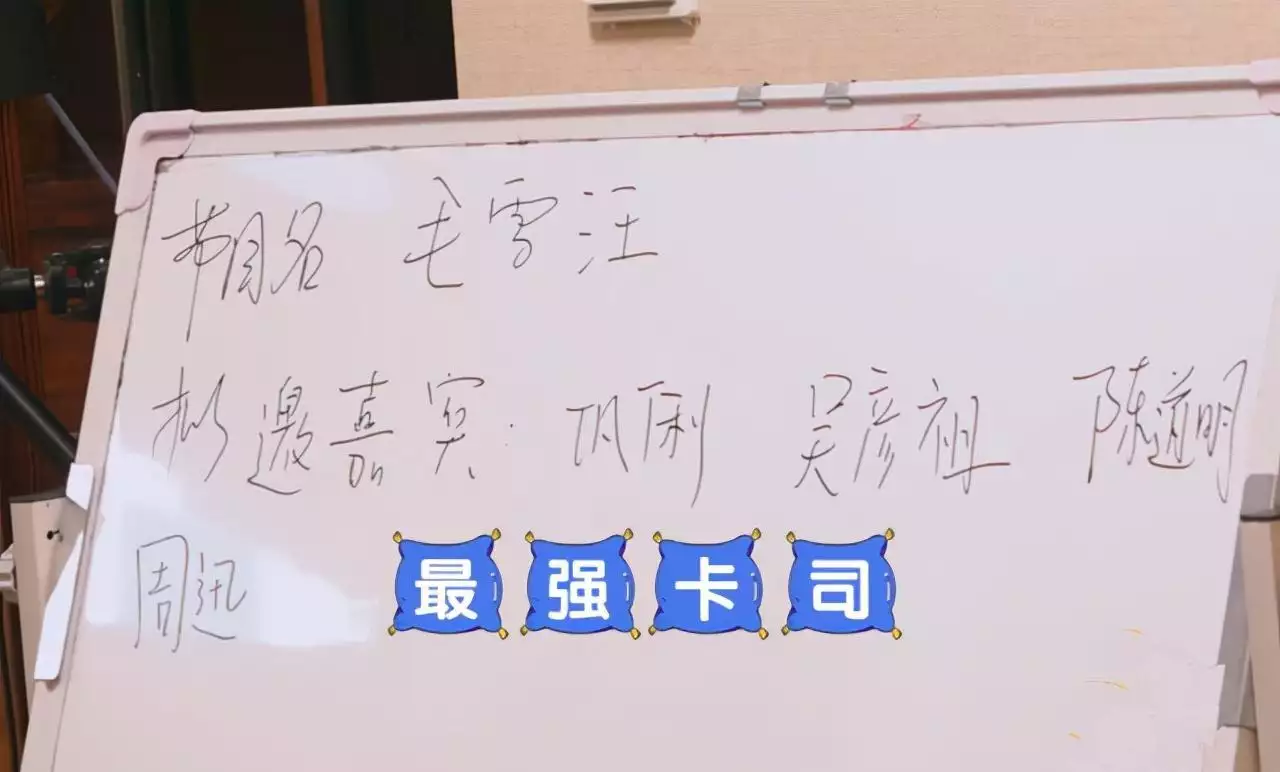 节目名 毛雪汪
拟邀嘉宾: 巩俐 吴彦祖 陈道明
周迅
最强卡司